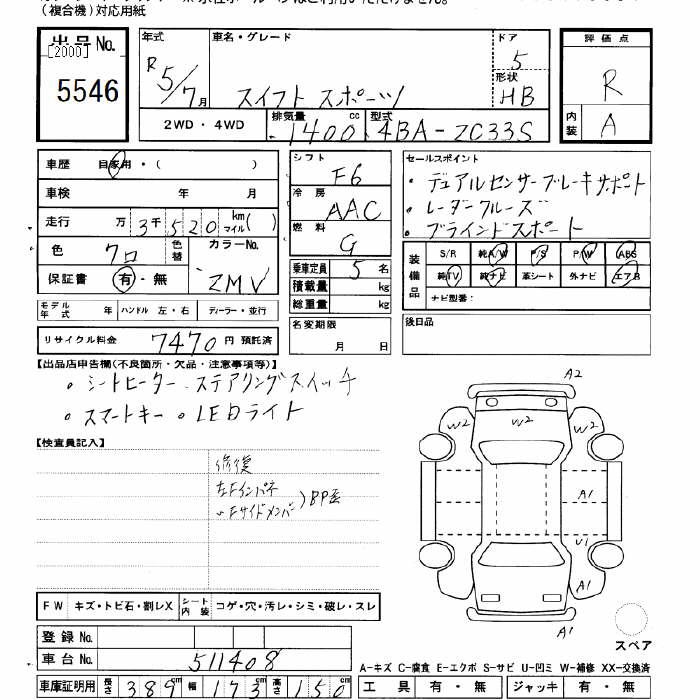 (複合機)対応用紙
出品No.
[2000]
5546
年式 R5/7月
車名・グレード スイフト スポーツ
ドア 5
形状 HB
2WD・4WD
排気量 1400 cc
型式 4BA-ZC33S
評価点 R
内装 A
車歴 自家用・( )
車検 年 月
走行 万3千520 km マイル( )
色 クロ 色替
カラーNo. ZMV
保証書 有・無
モデル年式 年 ハンドル 左・右 ディーラー・並行
リサイクル料金 7470円 預託済
シフト F6
冷房 AAC
燃料 G
乗車定員 5名
積載量 kg
総重量 kg
名変期限 月 日
セールスポイント
・デュアルセンサーブレーキサポート
・レーダークルーズ
・ブラインドスポート
装備品 S/R 純A/W P/S P/W ABS
純TV 純ナビ 革シート 外ナビ エアB
ナビ型番:
後日品
【出品店申告欄(不良箇所・欠品・注意事項等)】
。シートヒーター.ステアリングスイッチ
。スマートキー 。LEDライト
【検査員記入】
修復
左Fインパネ
〃Fサイドメンバー )BP歪
A2
W2 W2 W2
A1
U1
A1
A1
スペア
FW キズ・トビ石・割レX シート内装 コゲ・穴・汚レ・シミ・破レ・スレ
登録No.
車台No. 511408
車庫証明用 長さ 389cm 幅 173cm 高さ 150cm
A-キズ C-腐食 E-エクボ S-サビ U-凹ミ W-補修 XX-交換済
工具 有・無 ジャッキ 有・無